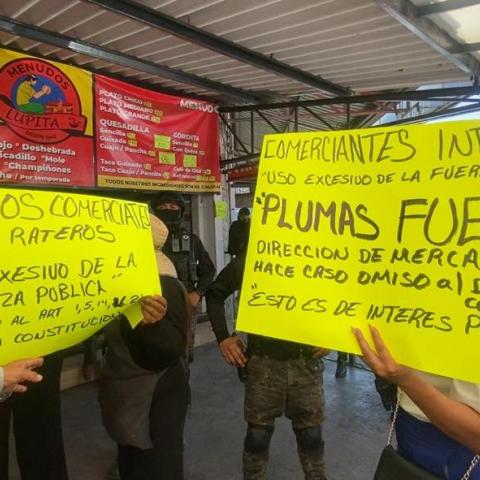 MENUDOS
LUPITA
Deshebrada
Mole
Champiñones
Por temporada
MENUDO
PLATO CHICO
PLATO MEDIANO
PLATO GRANDE
QUESADILLA
Sencilla
Guisado
Cuajo / Pancha
GORDITA
Sencilla
Guisado
Con Queso
Taco Guisado
Taco Cuajo / Pancha
TODOS NUESTROS
OS COMERCIANTES
RATEROS
EXCESIVO DE LA
ZA PUBLICA"
AL ART 1,5,14,
CONSTITUCION
COMERCIANTES INT
"USO EXCESIVO DE LA FUER
"PLUMAS FUE
DIRECCION DE MERCA
HACE CASO OMISO al D
CO
"ESTO ES DE INTERES P